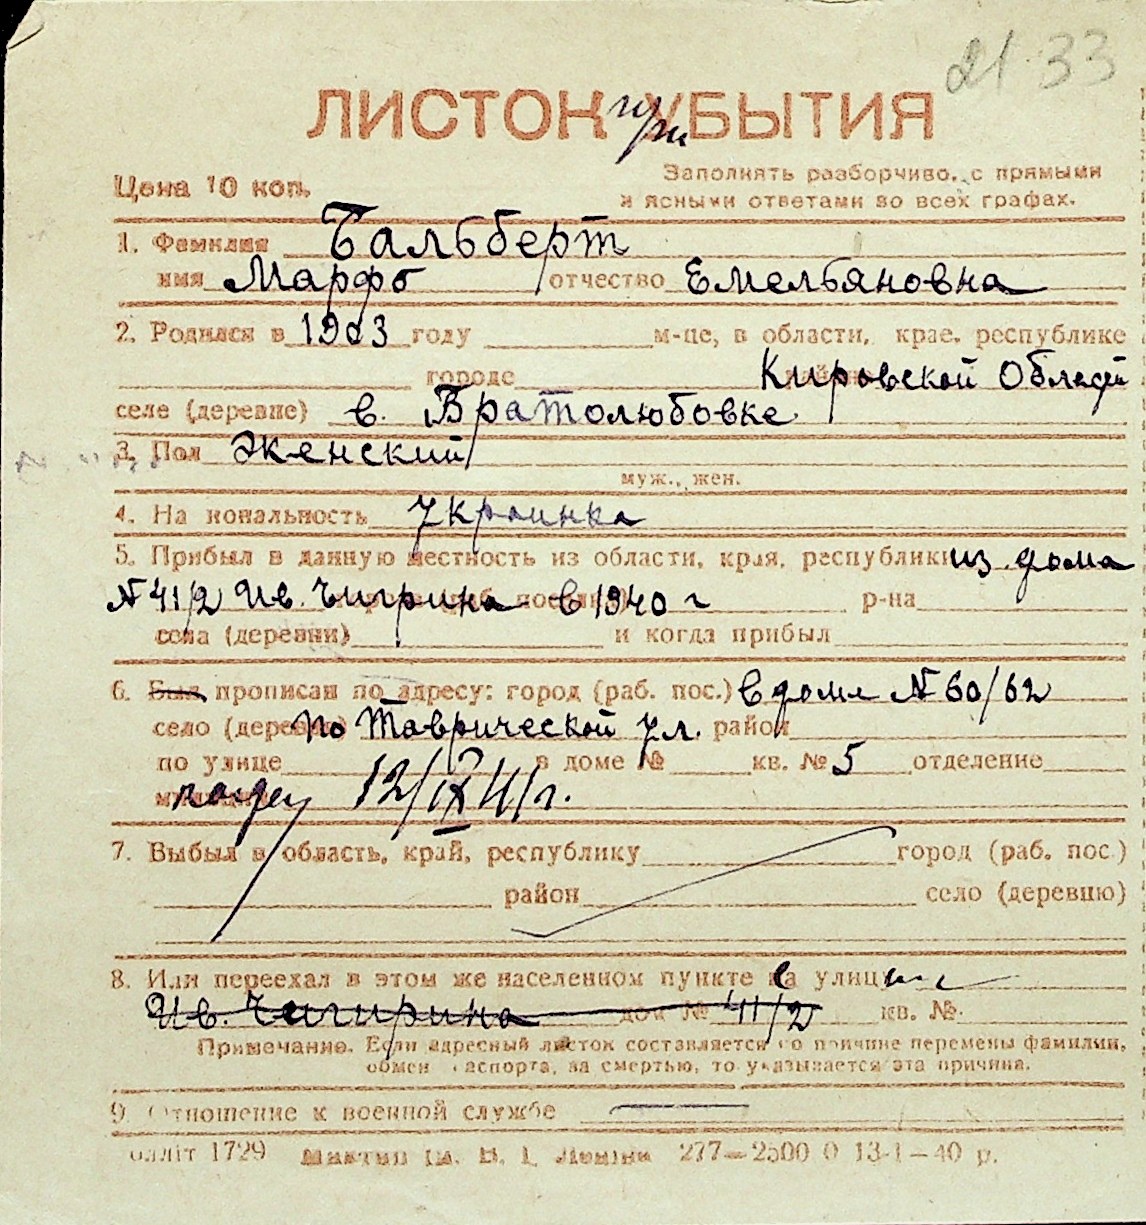 21 33
ЛИСТОК УБЫТИЯ
при
Цена 10 коп.
Заполнять разборчиво, с прямыми
и ясными ответами во всех графах.
1. Фамилия Гальберт
имя Марфа отчество Емельяновна
2. Родился в 1903 году м-це, в области, крае, республике
городе Кировской Област
селе (деревне) в. Братолюбовке
3. Пол Женский
муж., жен.
4. На иональность Украинка
5. Прибыл в данную местность из области, края, республики из дома
N 41/2 Ив. Чигрина в 1940 г р-на
села (деревни) и когда прибыл
6. Был прописан по адресу: город (раб. пос.) в доме N 60/62
село (деревня) по Таврической ул. район
по улице в доме № кв. № 5 отделение
12/IX 41 г.
7. Выбыл в область, край, республику город (раб. пос.)
район село (деревню)
8. Или переехал в этом же населенном пункте на улицу
Ив. Чигирина дом № 41/2 кв. №
Примечание. Если адресный листок составляется по причине перемены фамилии,
обмен паспорта, за смертью, то указывается эта причина.
9. Отношение к военной службе
олліт 1729 277—2500 0 13-1—40 р.